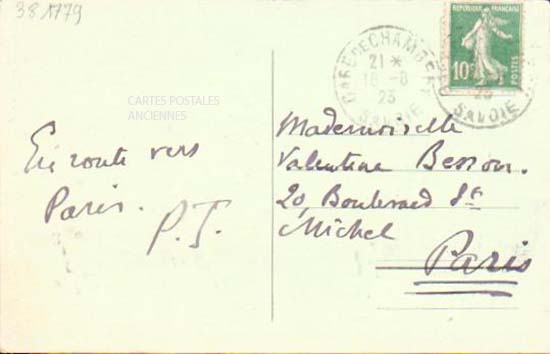 381779
CARTES POSTALES
ANCIENNES
En route vers
Paris.
P.J.
GARE DE CHAMBERY
21 *
18-8
23
SAVOIE
REPUBLIQUE FRANÇAISE
10c
POSTES
SAVOIE
Mademoiselle
Valentine Besson.
20, Boulevard St
Michel
Paris